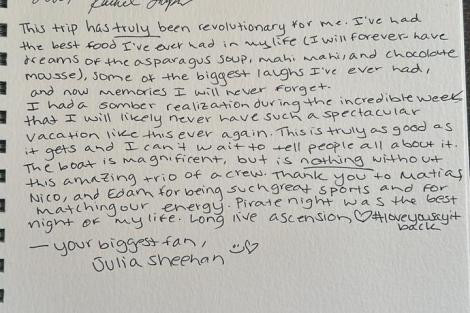 This trip has truly been revolutionary for me. I've had
the best food I've ever had in my life (I will forever have
dreams of the asparagus soup, mahi mahi, and chocolate
mousse), some of the biggest laughs I've ever had,
and now memories I will never forget.
I had a somber realization during the incredible week
that I will likely never have such a spectacular
vacation like this ever again. This is truly as good as
it gets and I can't wait to tell people all about it.
The boat is magnificent, but is nothing without
this amazing trio of a crew. Thank you to Matias,
Nico, and Edam for being such great sports and for
matching our energy. Pirate night was the best
night of my life. Long live ascension ♡ #loveyousayit
back
— your biggest fan,
Julia Sheehan